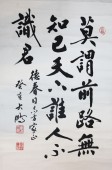 莫謂前路無
知己天下誰人不
識君
德春同志方家正
癸年大鵬